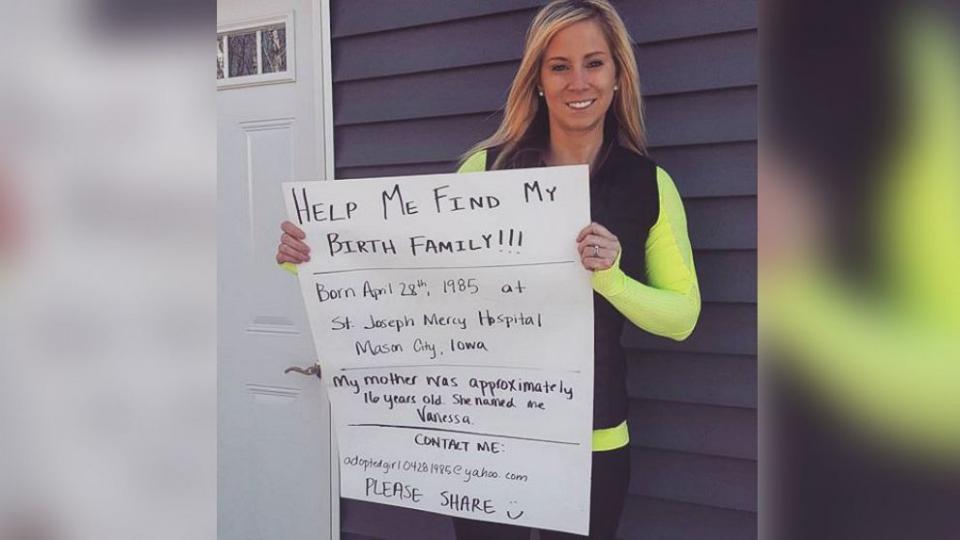 HELP ME FIND MY
BIRTH FAMILY!!!
Born April 28th, 1985 at
St. Joseph Mercy Hospital
Mason City, Iowa
My mother was approximately
16 years old. She named me
Vanessa.
CONTACT ME:
adoptedgirl04281985@yahoo.com
PLEASE SHARE